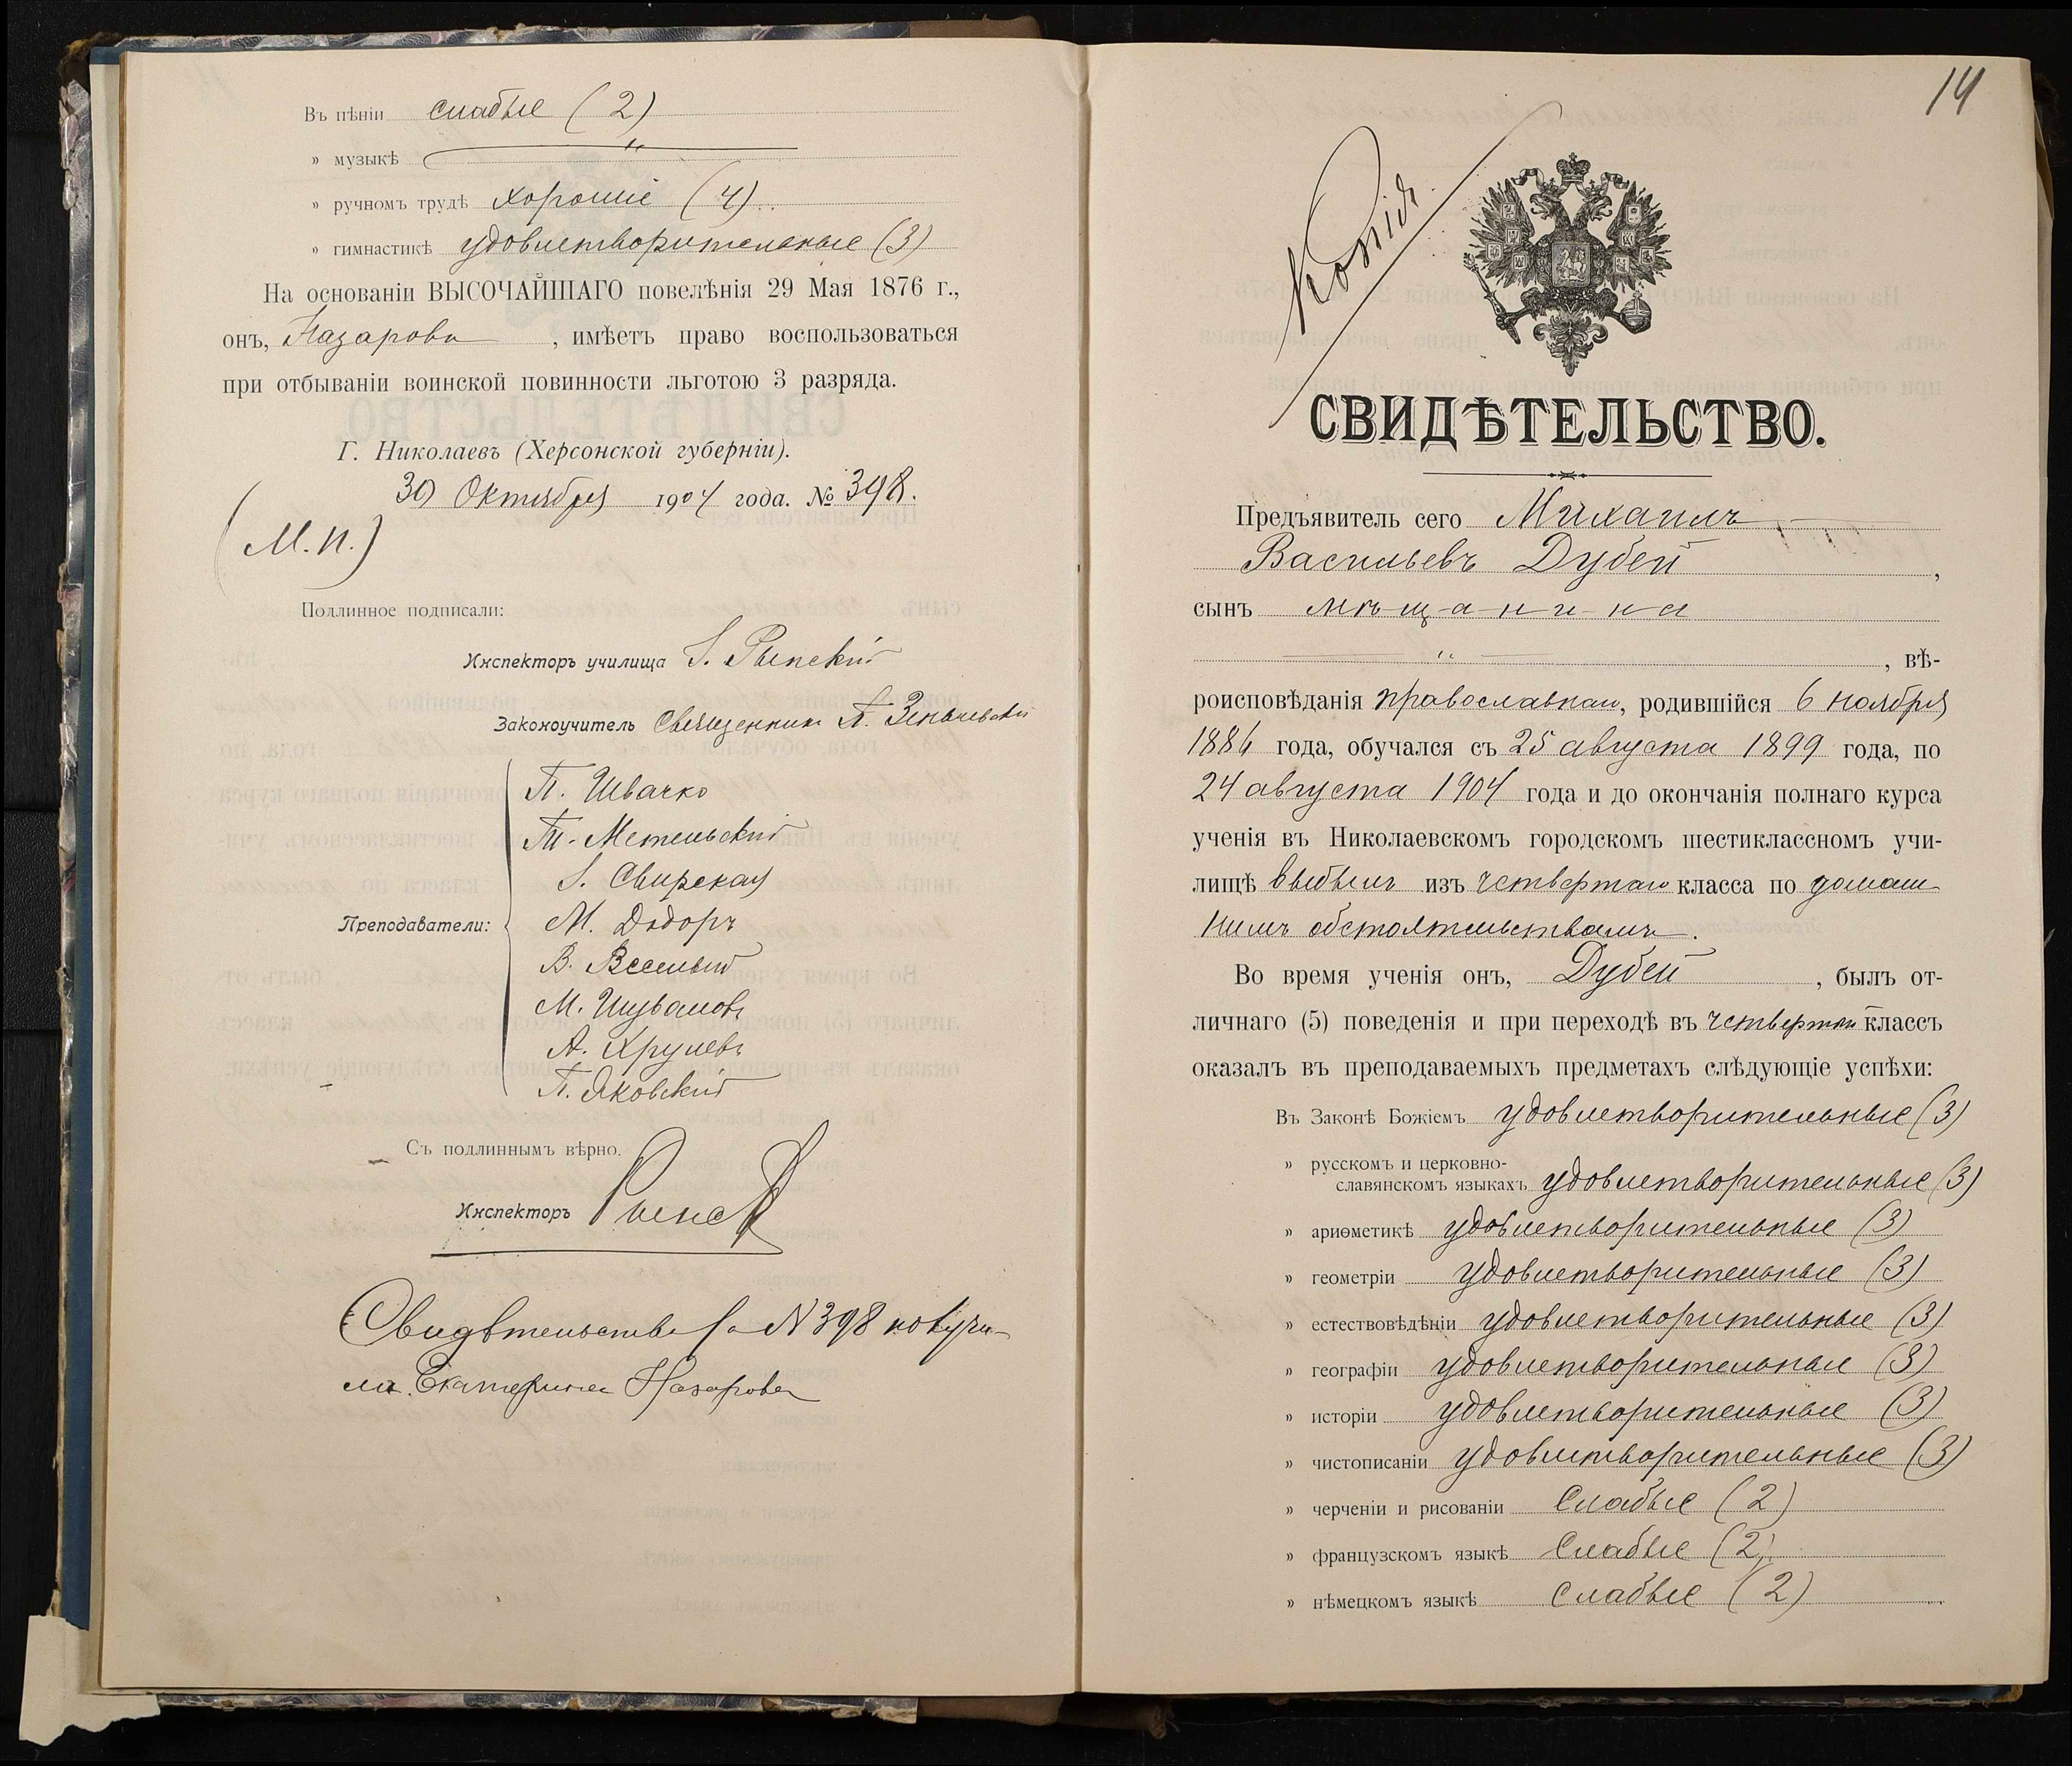 Въ пѣніи слабые (2)
» музыкѣ "
» ручномъ трудѣ хорошіе (4)
» гимнастикѣ удовлетворительные (3)
На основаніи ВЫСОЧАЙШАГО повелѣнія 29 Мая 1876 г.,
онъ, Назаровъ, имѣетъ право воспользоваться
при отбываніи воинской повинности льготою 3 разряда.
Г. Николаевъ (Херсонской губерніи).
30 Октября 1904 года. № 398.
(М. П.)
Подлинное подписали:
Инспекторъ училища
Законоучитель Священникъ П.
Преподаватели:
П. Швачко
Метельскій
Свирская
М. Додоръ
В. Веселый
М. Шуваловъ
А. Хрулевъ
П. Яковскій
Съ подлиннымъ вѣрно.
Инспекторъ
Свидѣтельство за N 398 получи-
ла Екатерина Назарова
14
Копія
СВИДѢТЕЛЬСТВО.
Предъявитель сего Михаилъ
Васильевъ Дубей,
сынъ мѣщанина
", вѣ-
роисповѣданія православнаго, родившійся 6 ноября
1886 года, обучался съ 25 августа 1899 года, по
24 августа 1904 года и до окончанія полнаго курса
ученія въ Николаевскомъ городскомъ шестиклассномъ учи-
лищѣ выбылъ изъ четвертаго класса по домаш-
нимъ обстоятельствамъ.
Во время ученія онъ, Дубей, былъ от-
личнаго (5) поведенія и при переходѣ въ четвертый классъ
оказалъ въ преподаваемыхъ предметахъ слѣдующіе успѣхи:
Въ Законѣ Божіемъ удовлетворительные (3)
» русскомъ и церковно-
славянскомъ языкахъ удовлетворительные (3)
» ариѳметикѣ удовлетворительные (3)
» геометріи удовлетворительные (3)
» естествовѣдѣніи удовлетворительные (3)
» географіи удовлетворительные (3)
» исторіи удовлетворительные (3)
» чистописаніи удовлетворительные (3)
» черченіи и рисованіи слабые (2)
» французскомъ языкѣ слабые (2)
» нѣмецкомъ языкѣ слабые (2)